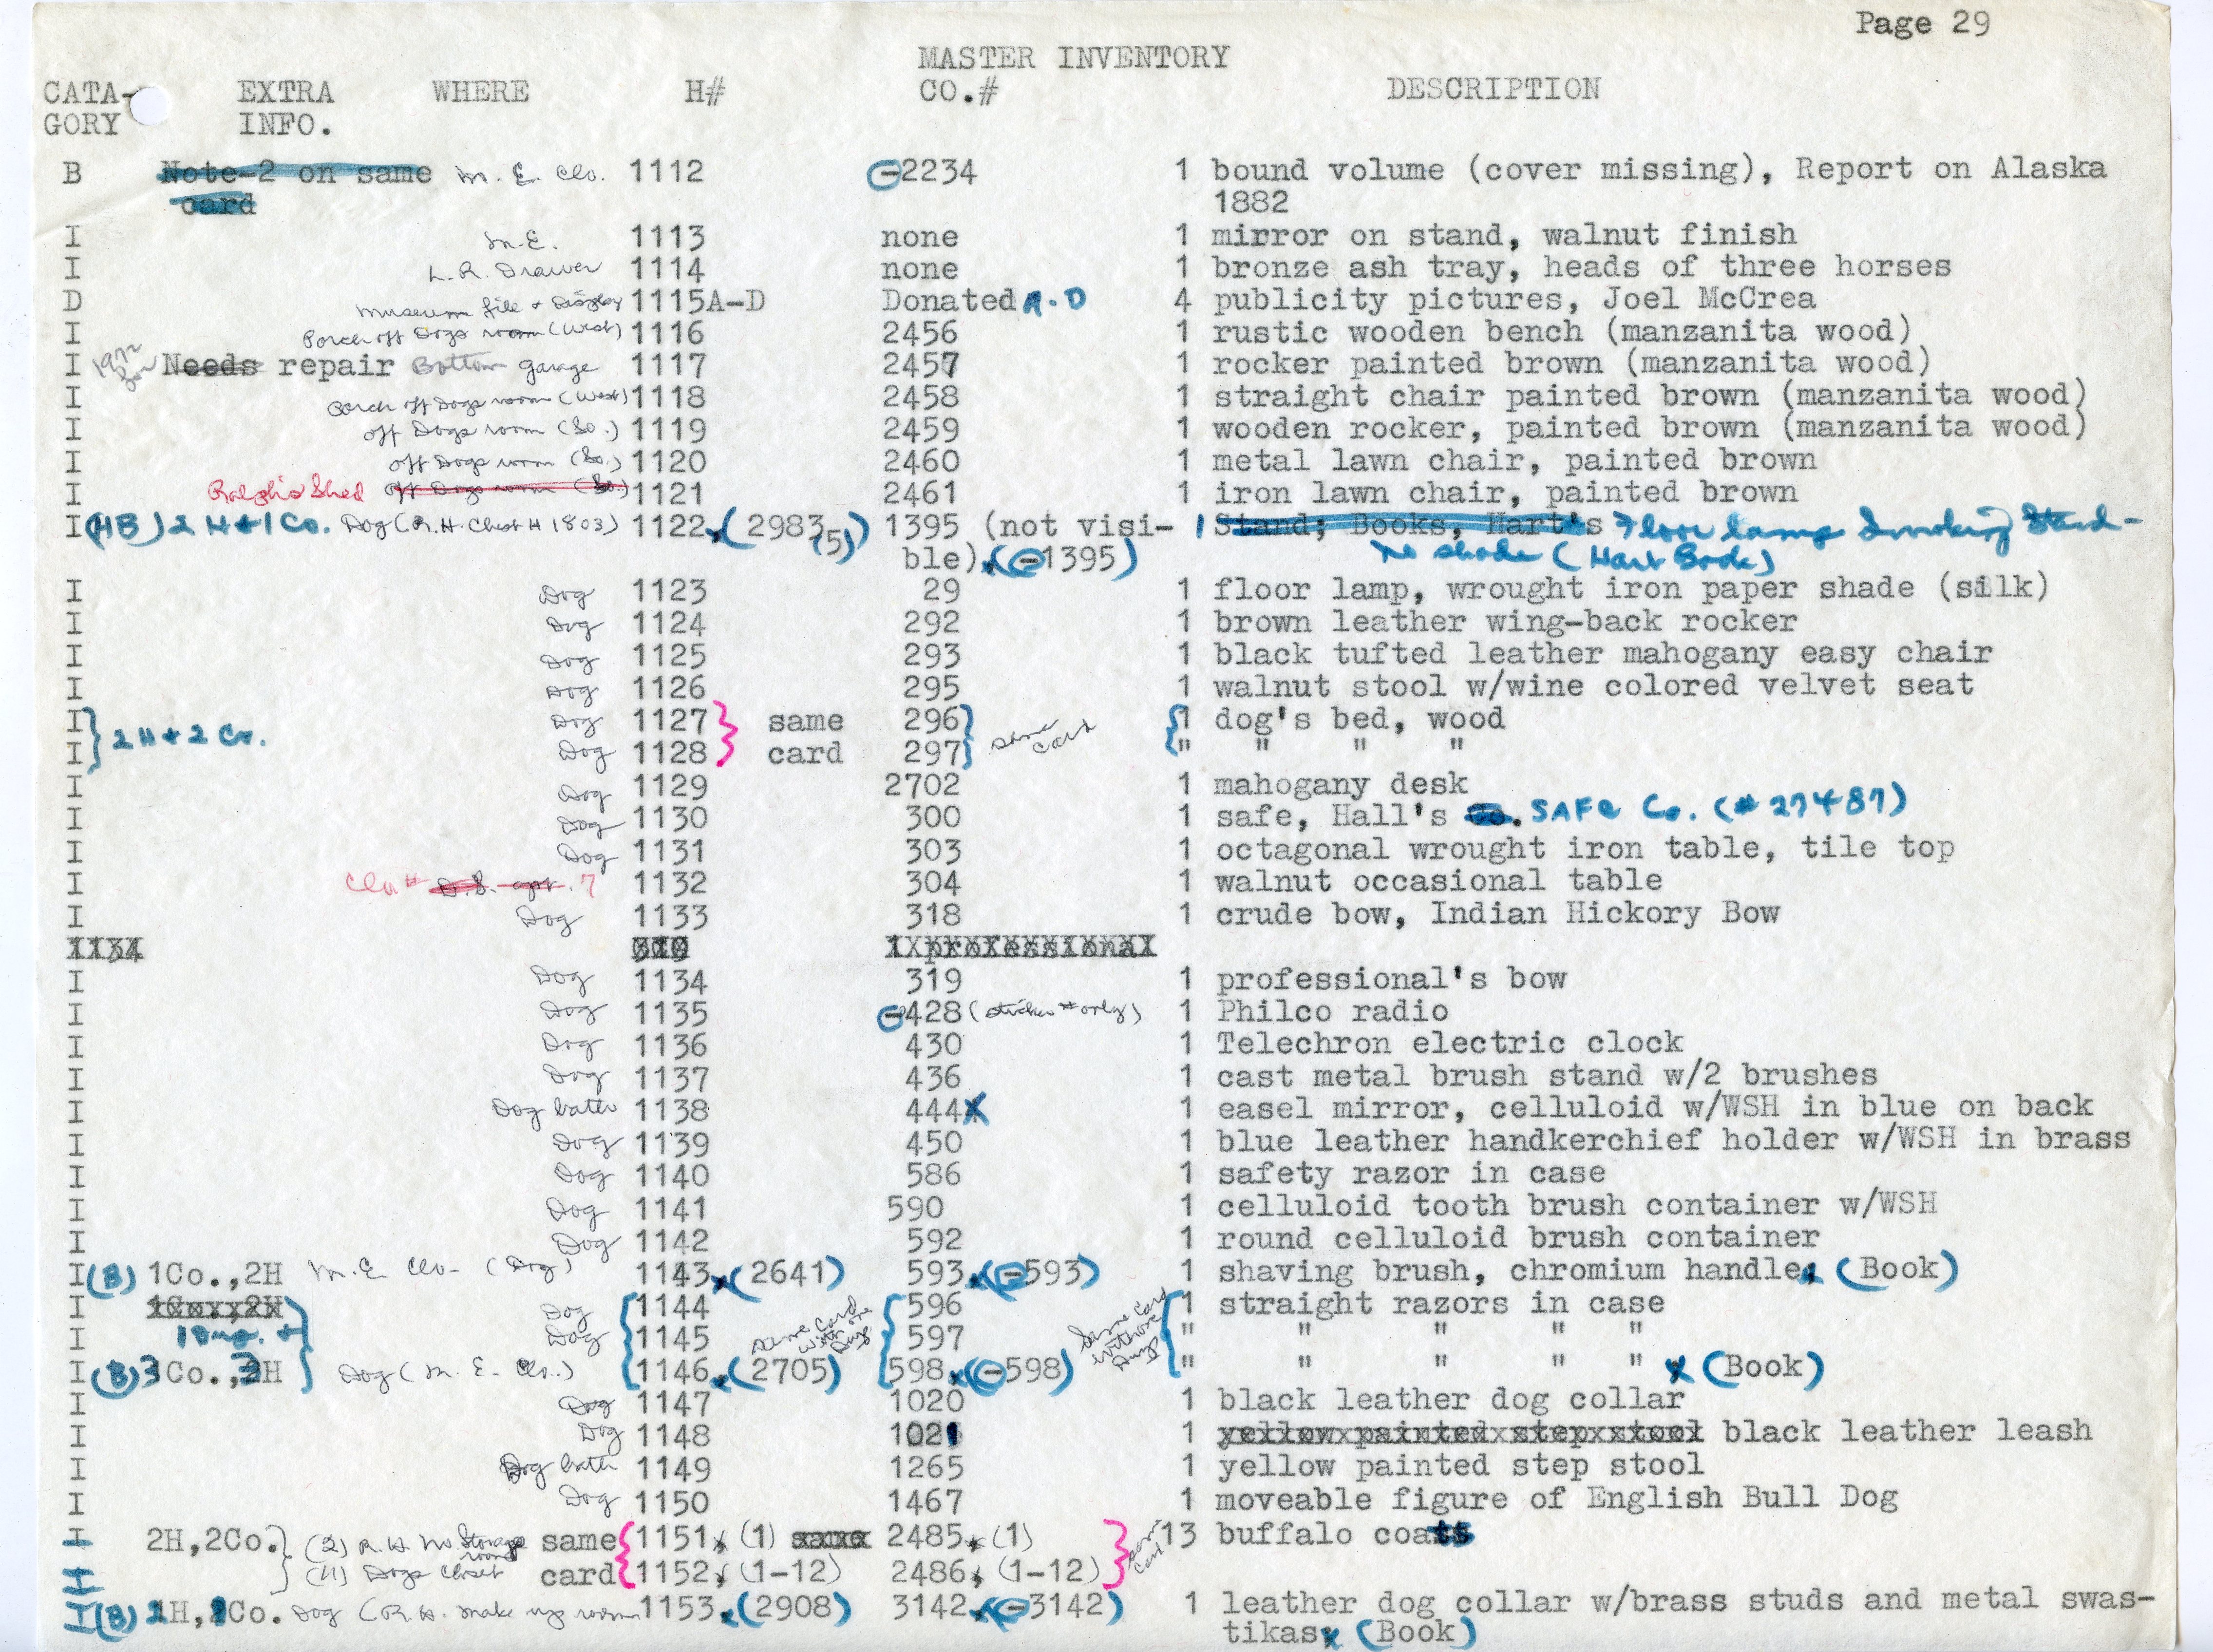 Page 29
MASTER INVENTORY
CATA- EXTRA WHERE H# CO.# DESCRIPTION
GORY INFO.
B Note-2 on same M.E. Clo. 1112 -2234 1 bound volume (cover missing), Report on Alaska
card 1882
I M.E. 1113 none 1 mirror on stand, walnut finish
I L.R. Drawer 1114 none 1 bronze ash tray, heads of three horses
D Museum file + Display 1115A-D Donated A-D 4 publicity pictures, Joel McCrea
I Porch off Dogs room (West) 1116 2456 1 rustic wooden bench (manzanita wood)
I 1972 Needs repair Bottom garage 1117 2457 1 rocker painted brown (manzanita wood)
I Porch off Dogs room (West) 1118 2458 1 straight chair painted brown (manzanita wood)
I off Dogs room (So.) 1119 2459 1 wooden rocker, painted brown (manzanita wood)
I off Dogs room (So.) 1120 2460 1 metal lawn chair, painted brown
I Ralph's Shed off Dogs room (So.) 1121 2461 1 iron lawn chair, painted brown
I (HB) 2 H + 1 Co. Dog (R.H. Chest H 1803) 1122, (2983 (5)) 1395 (not visi- 1 Stand; Books, Hart's Floor lamp Smoking Stand-
ble), (-1395) No shade (Hart Book)
I Dog 1123 29 1 floor lamp, wrought iron paper shade (silk)
I Dog 1124 292 1 brown leather wing-back rocker
I Dog 1125 293 1 black tufted leather mahogany easy chair
I Dog 1126 295 1 walnut stool w/wine colored velvet seat
I } 2 H + 2 Co. Dog 1127 } same 296 } same card { 1 dog's bed, wood
I Dog 1128 card 297 " " " "
I Dog 1129 2702 1 mahogany desk
I Dog 1130 300 1 safe, Hall's Co. SAFE Co. (# 27487)
I Dog 1131 303 1 octagonal wrought iron table, tile top
I D.S. apt. 7 1132 304 1 walnut occasional table
I Dog 1133 318 1 crude bow, Indian Hickory Bow
1134 319 1 professional
I Dog 1134 319 1 professional's bow
I Dog 1135 -428 (sticker # only) 1 Philco radio
I Dog 1136 430 1 Telechron electric clock
I Dog 1137 436 1 cast metal brush stand w/2 brushes
I Dog bath 1138 444X 1 easel mirror, celluloid w/WSH in blue on back
I Dog 1139 450 1 blue leather handkerchief holder w/WSH in brass
I Dog 1140 586 1 safety razor in case
I Dog 1141 590 1 celluloid tooth brush container w/WSH
I Dog 1142 592 1 round celluloid brush container
I (B) 1Co.,2H M.E. Clo- (Dog) 1143, (2641) 593, (-593) 1 shaving brush, chromium handle, (Book)
I 1Co.,2H Dog 1144 596 1 straight razors in case
I Dog 1145 same card 597 same card " " " " "
I (B) 3Co.,3H Dog (M.E. Clo.) 1146, (2705) 598, (-598) " " " " " x (Book)
I Dog 1147 1020 1 black leather dog collar
I Dog 1148 1021 1 yellow painted step stool black leather leash
I Dog bath 1149 1265 1 yellow painted step stool
I Dog 1150 1467 1 moveable figure of English Bull Dog
I 2H,2Co. } (2) R.H. Storage room same { 1151, (1) same 2485, (1) } same card 13 buffalo coats
I (11) Dogs Closet card { 1152, (1-12) 2486, (1-12)
I (B) 2H, 1Co. Dog (R.H. make up room 1153, (2908) 3142, (-3142) 1 leather dog collar w/brass studs and metal swas-
tikas, (Book)